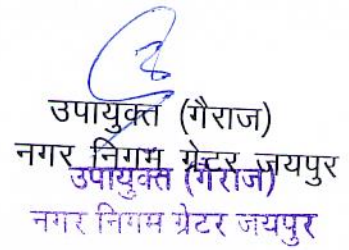 उपायुक्त (गैराज)
नगर निगम ग्रेटर जयपुर
उपायुक्त (गैराज)
नगर निगम ग्रेटर जयपुर